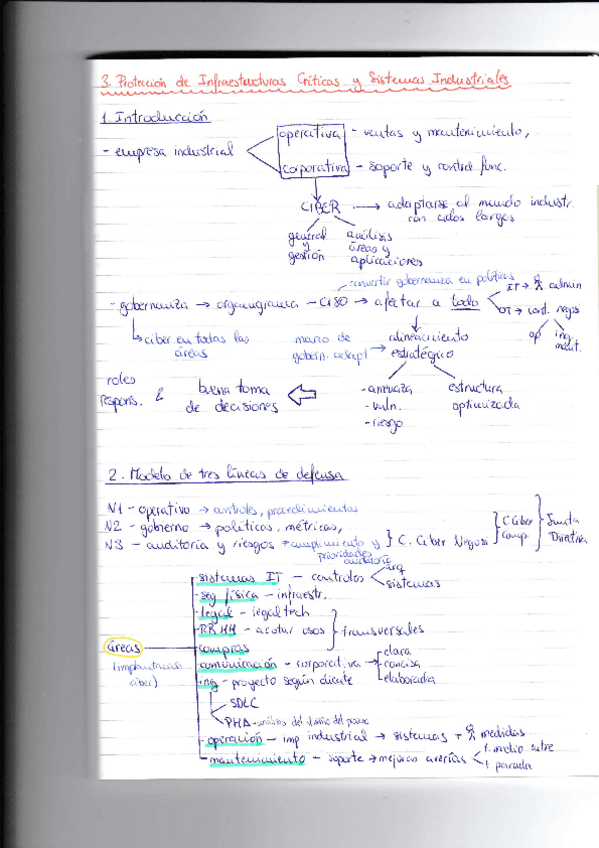 3. Protección de Infraestructuras Críticas y Sistemas Industriales
1. Introducción
- empresa industrial
operativa - ventas y mantenimiento,
corporativa - soporte y control func.
CIBER → adaptarse al mundo industr.
con ciclos largos
general y gestión
análisis áreas y aplicaciones
convertir gobernanza en políticas
- gobernanza → organigrama - CISO → afectar a todo
IT → admin
OT →
op
ing
ciber en todas las
áreas
marco de
gobern. adapt → alineamiento
estratégico
roles
respons. & buena toma
de decisiones
- amenaza
- vuln.
- riesgo
estructura
optimizada
2. Modelo de tres líneas de defensa
N1 - operativo → controles, procedimientos
N2 - gobierno → políticas, métricas,
N3 - auditoría y riesgos → cumplimiento y
prioridades
auditoría
C. Ciber Negoci
C. Ciber
Comp.
Junta
Directiva
áreas
(implantación
ciber)
- sistemas IT - controles
arq
sistemas
- seg física - infraestr.
- legal - legaltech
- RRHH - acotar usos
transversales
- compras
- comunicación - corporativa
clara
concisa
elaborada
- ing - proyecto según cliente
SDLC
PHA - análisis del diseño del
- operación - imp industrial → sistemas + medidas
- mantenimiento - soporte → mejoras averías
1 parada